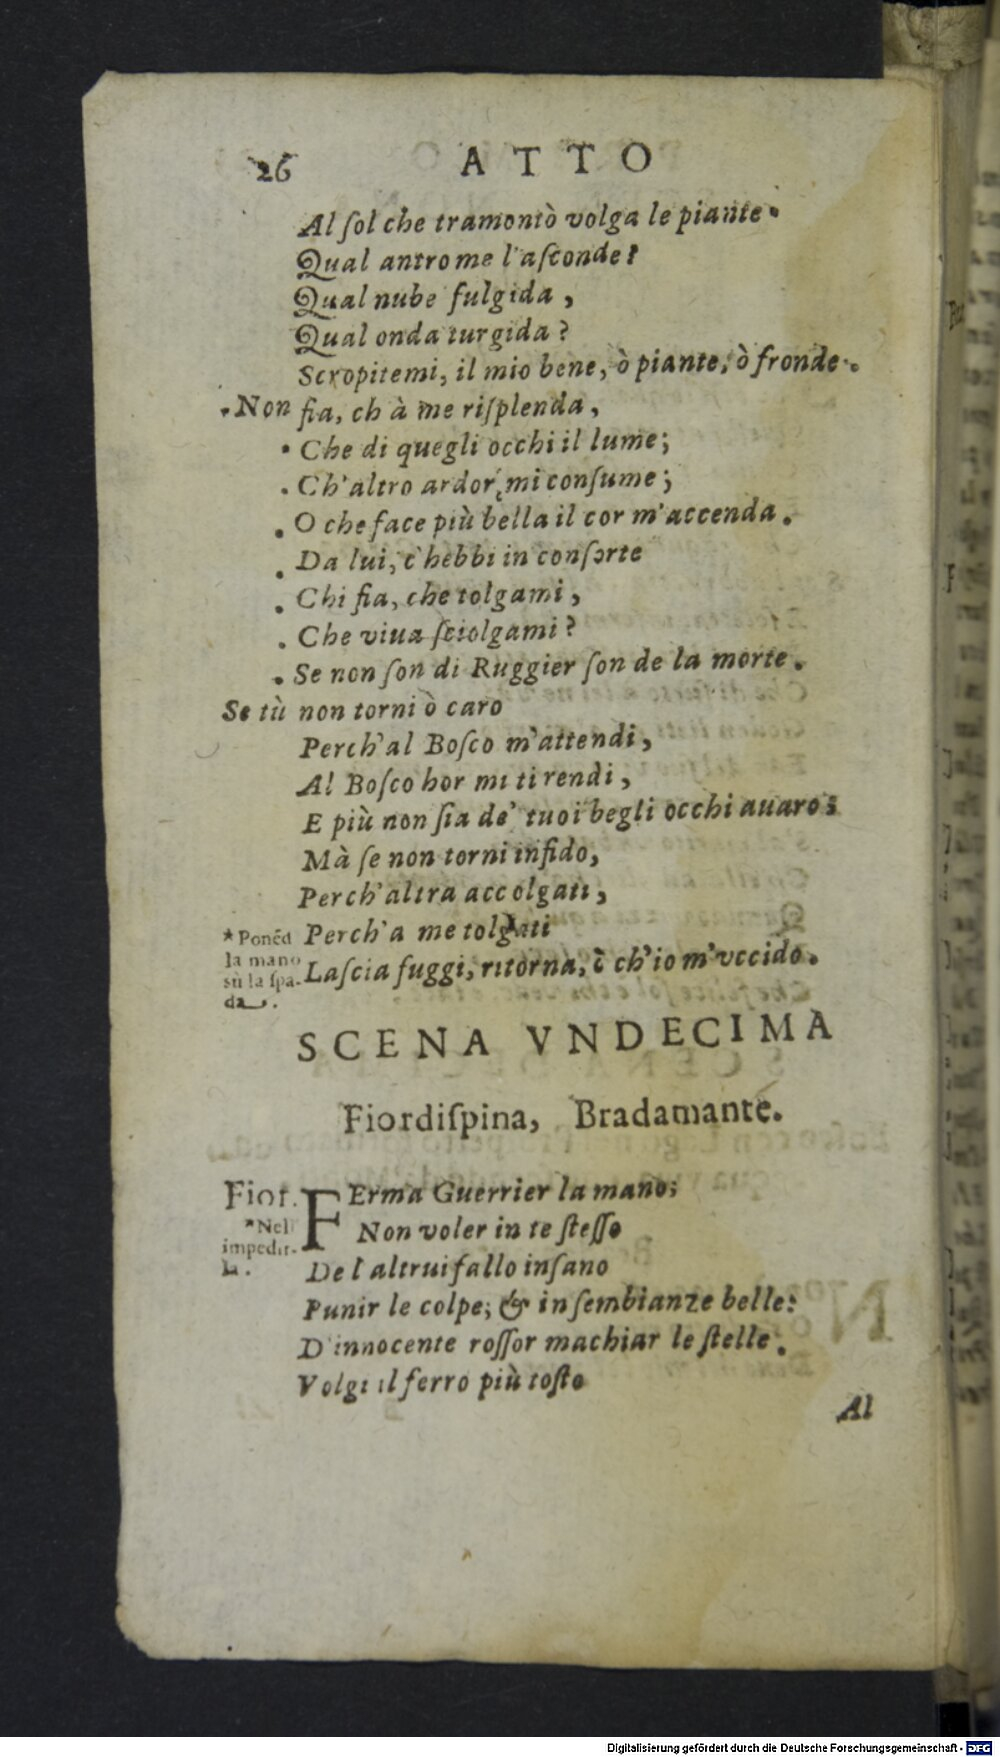 26 ATTO
Al ſol che tramontò volga le piante.
Qual antro me l'aſconde?
Qual nube fulgida,
Qual onda turgida?
Scropitemi, il mio bene, ò piante, ò fronde.
Non fia, ch à me riſplenda,
Che di quegli occhi il lume;
Ch'altro ardor mi conſume;
O che face più bella il cor m'accenda.
Da lui, c'hebbi in conſorte
Chi fia, che tolgami,
Che viua ſciolgami?
Se non ſon di Ruggier ſon de la morte.
Se tù non torni ò caro
Perch'al Boſco m'attendi,
Al Boſco hor mi ti rendi,
E più non ſia de' tuoi begli occhi auaro:
Mà ſe non torni infido,
Perch'altra accolgati,
Perch'a me tolgati
*Ponẽd
la mano
sù la ſpa-
da.
Laſcia fuggi, ritorna, ò ch'io m'vccido.
SCENA VNDECIMA
Fiordiſpina, Bradamante.
Fior. FErma Guerrier la mano;
*Nell
impedir-
la.
Non voler in te ſteſſo
De l'altrui fallo inſano
Punir le colpe; & in ſembianze belle:
D'innocente roſſor machiar le ſtelle.
Volgi il ferro più toſto
Al
Digitalisierung gefördert durch die Deutsche Forschungsgemeinschaft - DFG